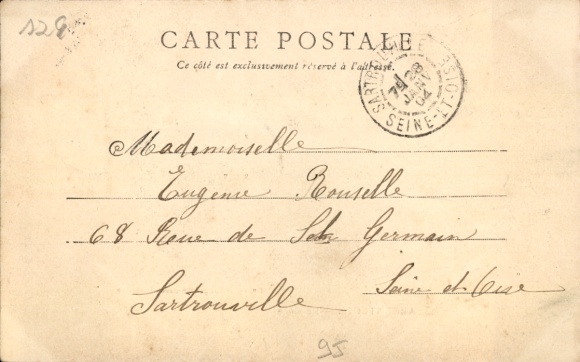 128
CARTE POSTALE
Ce côté est exclusivement réservé à l'adresse.
SARTROUVILLE SEINE-ET-OISE
28
JANV
04
Mademoiselle
Eugénie Rouselle
68 Rue de St Germain
Sartrouville Seine-et-Oise
95